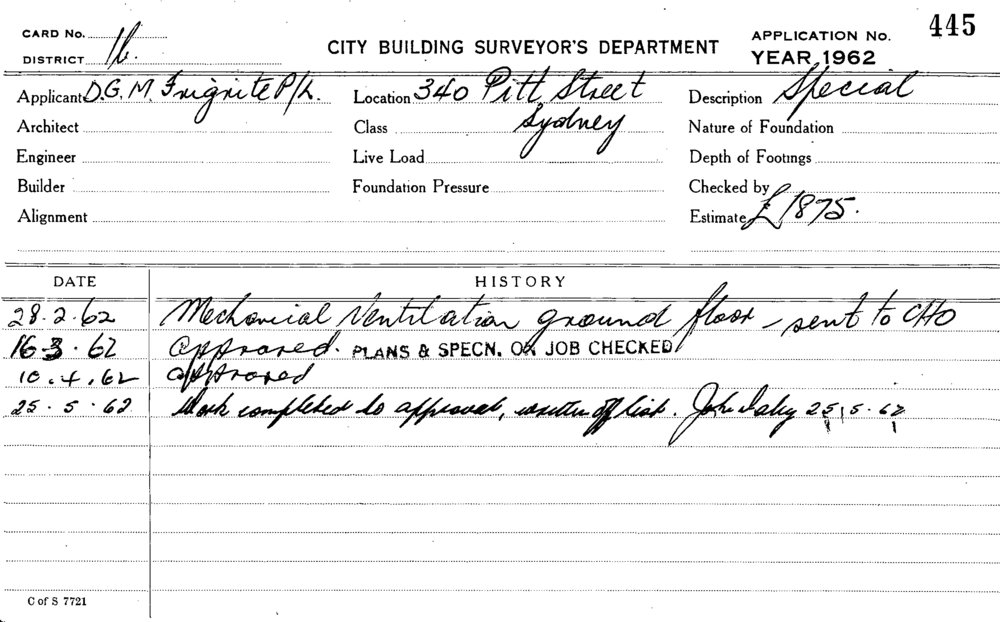 CARD No.
DISTRICT 1b.
CITY BUILDING SURVEYOR'S DEPARTMENT
APPLICATION No. 445
YEAR 1962
Applicant D.G.M. Frignite P/L.
Location 340 Pitt Street
Sydney
Description Special
Architect
Class
Nature of Foundation
Engineer
Live Load
Depth of Footings
Builder
Foundation Pressure
Checked by
Alignment
Estimate £1875.
DATE HISTORY
28.2.62 Mechanical Ventilation ground floor - sent to CHO
16.3.62 approved. PLANS & SPECN. ON JOB CHECKED
10.4.62 approved
25.5.62 Work completed to approval, written off list. John 25.5.62
C of S 7721